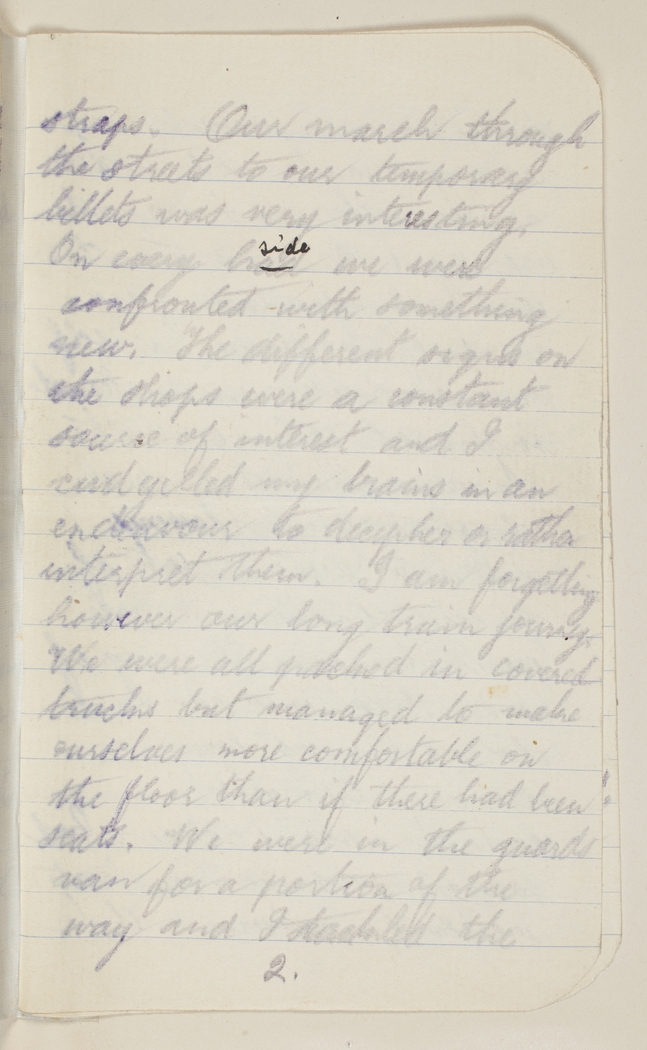 straps. Our march through
the streets to our temporary
billets was very interesting.
side
On every had we were
confronted with something
new. The different signs on
the shops were a constant
source of interest and I
cudgelled my brains in an
endeavour to decipher or rather
interpret them. I am forgetting
however our long train journey.
We were all packed in covered
trucks but managed to make
ourselves more comfortable on
the floor than if there had been
seats. We were in the guards
van for a portion of the
way and I tackled the
2.